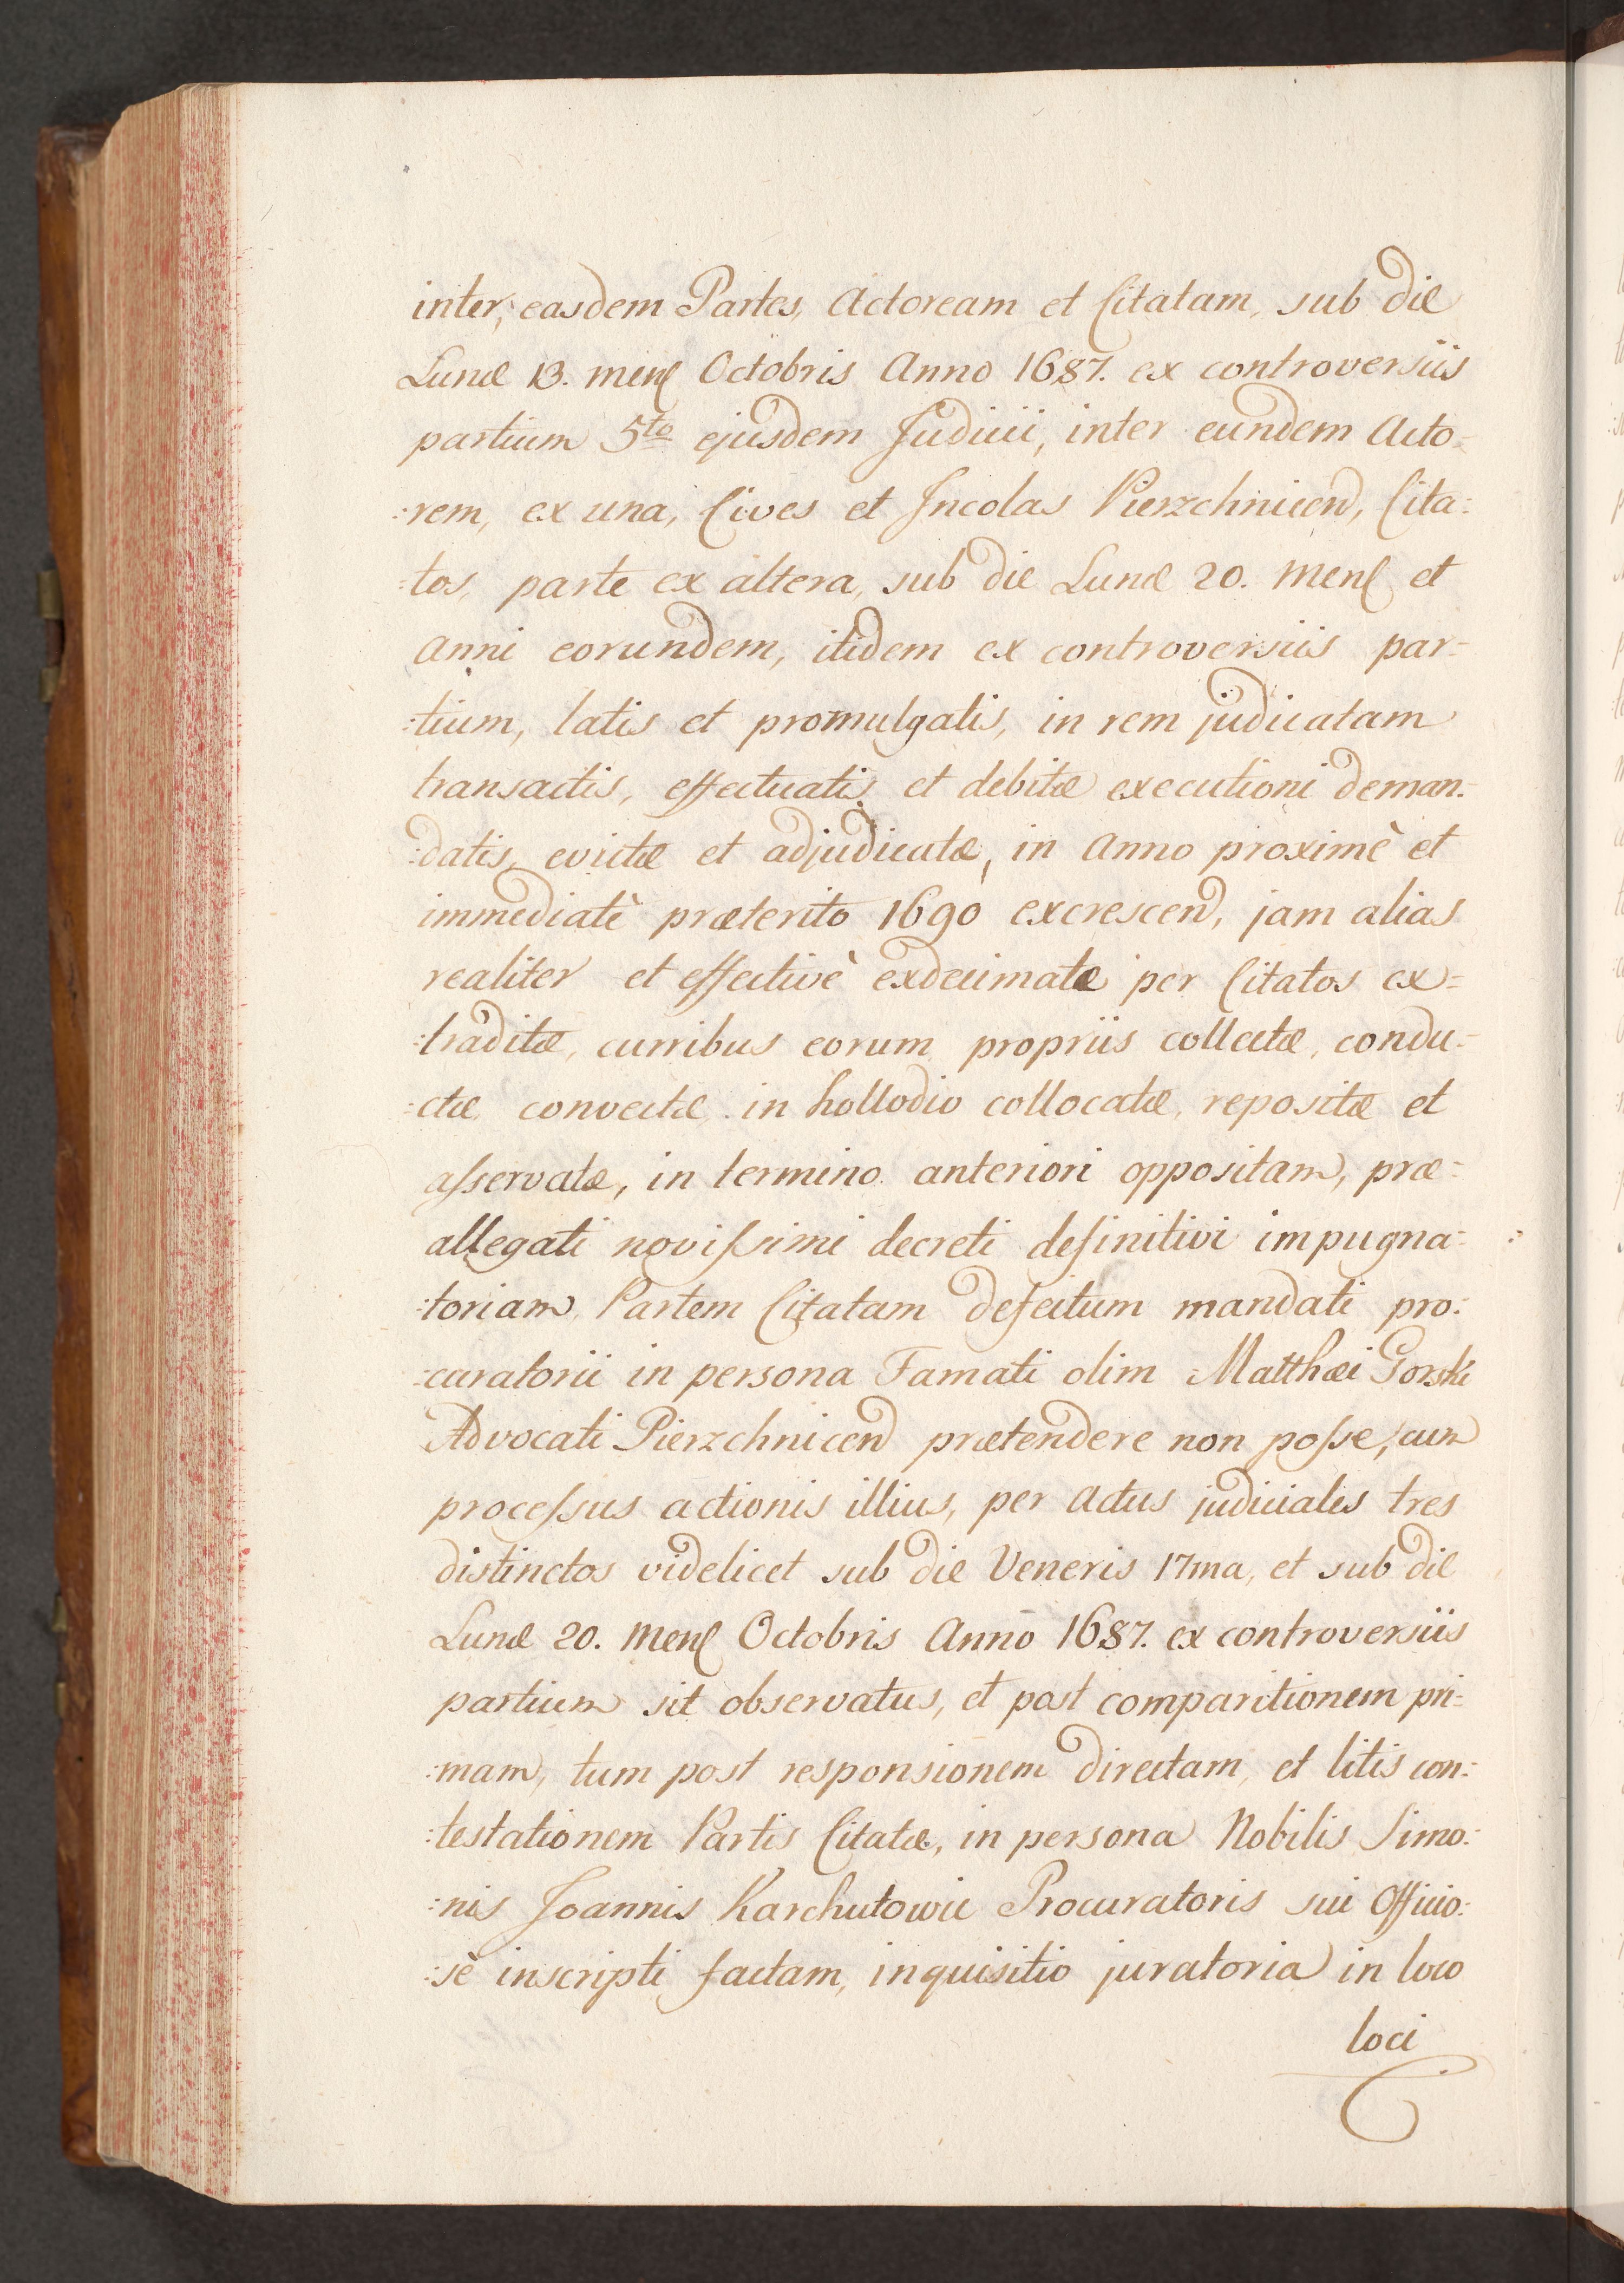 inter, easdem Partes, Actoream et Citatam, sub die
Lunæ 13. menſ Octobris Anno 1687. ex controversiis
partium 5to ejusdem Judicii, inter eundem Acto-
:rem, ex una, Cives et Incolas Pierzchnicen, Cita:
:tos, parte ex altera, sub die Lunæ 20. Menſ et
Anni eorundem, itidem ex controversiis par-
:tium, latis et promulgatis, in rem judicatam
transactis, effectuatis et debitæ executioni deman-
:datis, evictæ et adjudicatæ, in Anno proximè et
immediatè præterito 1690 excrescen, jam alias
realiter et effectivè exdecimatæ per Citatos ex-
:traditæ, curribus eorum propriis collectæ, condu-
:ctæ convectæ in hollodio collocatæ, repositæ et
aſservatæ, in termino anteriori oppositam, præ-
allegati noviſsimi decreti definitivi impugna-
:toriam, Partem Citatam defectum mandati pro-
:curatorii in persona Famati olim Matthæi Gorski
Advocati Pierzchnicen prætendere non poſse, cum
proceſsus actionis illius, per Actus judiciales tres
distinctos videlicet sub die Veneris 17ma, et sub die
Lunæ 20. Menſ Octobris Anno 1687. ex controversiis
partium sit observatus, et post comparitionem pri-
:mam, tum post responsionem directam, et litis con-
:testationem Partis Citatæ, in persona Nobilis Simo-
:nis Joannis Karchutowic Procuratoris sui Officio-
:sè inscripti factam, inquisitio juratoria in loco
loci